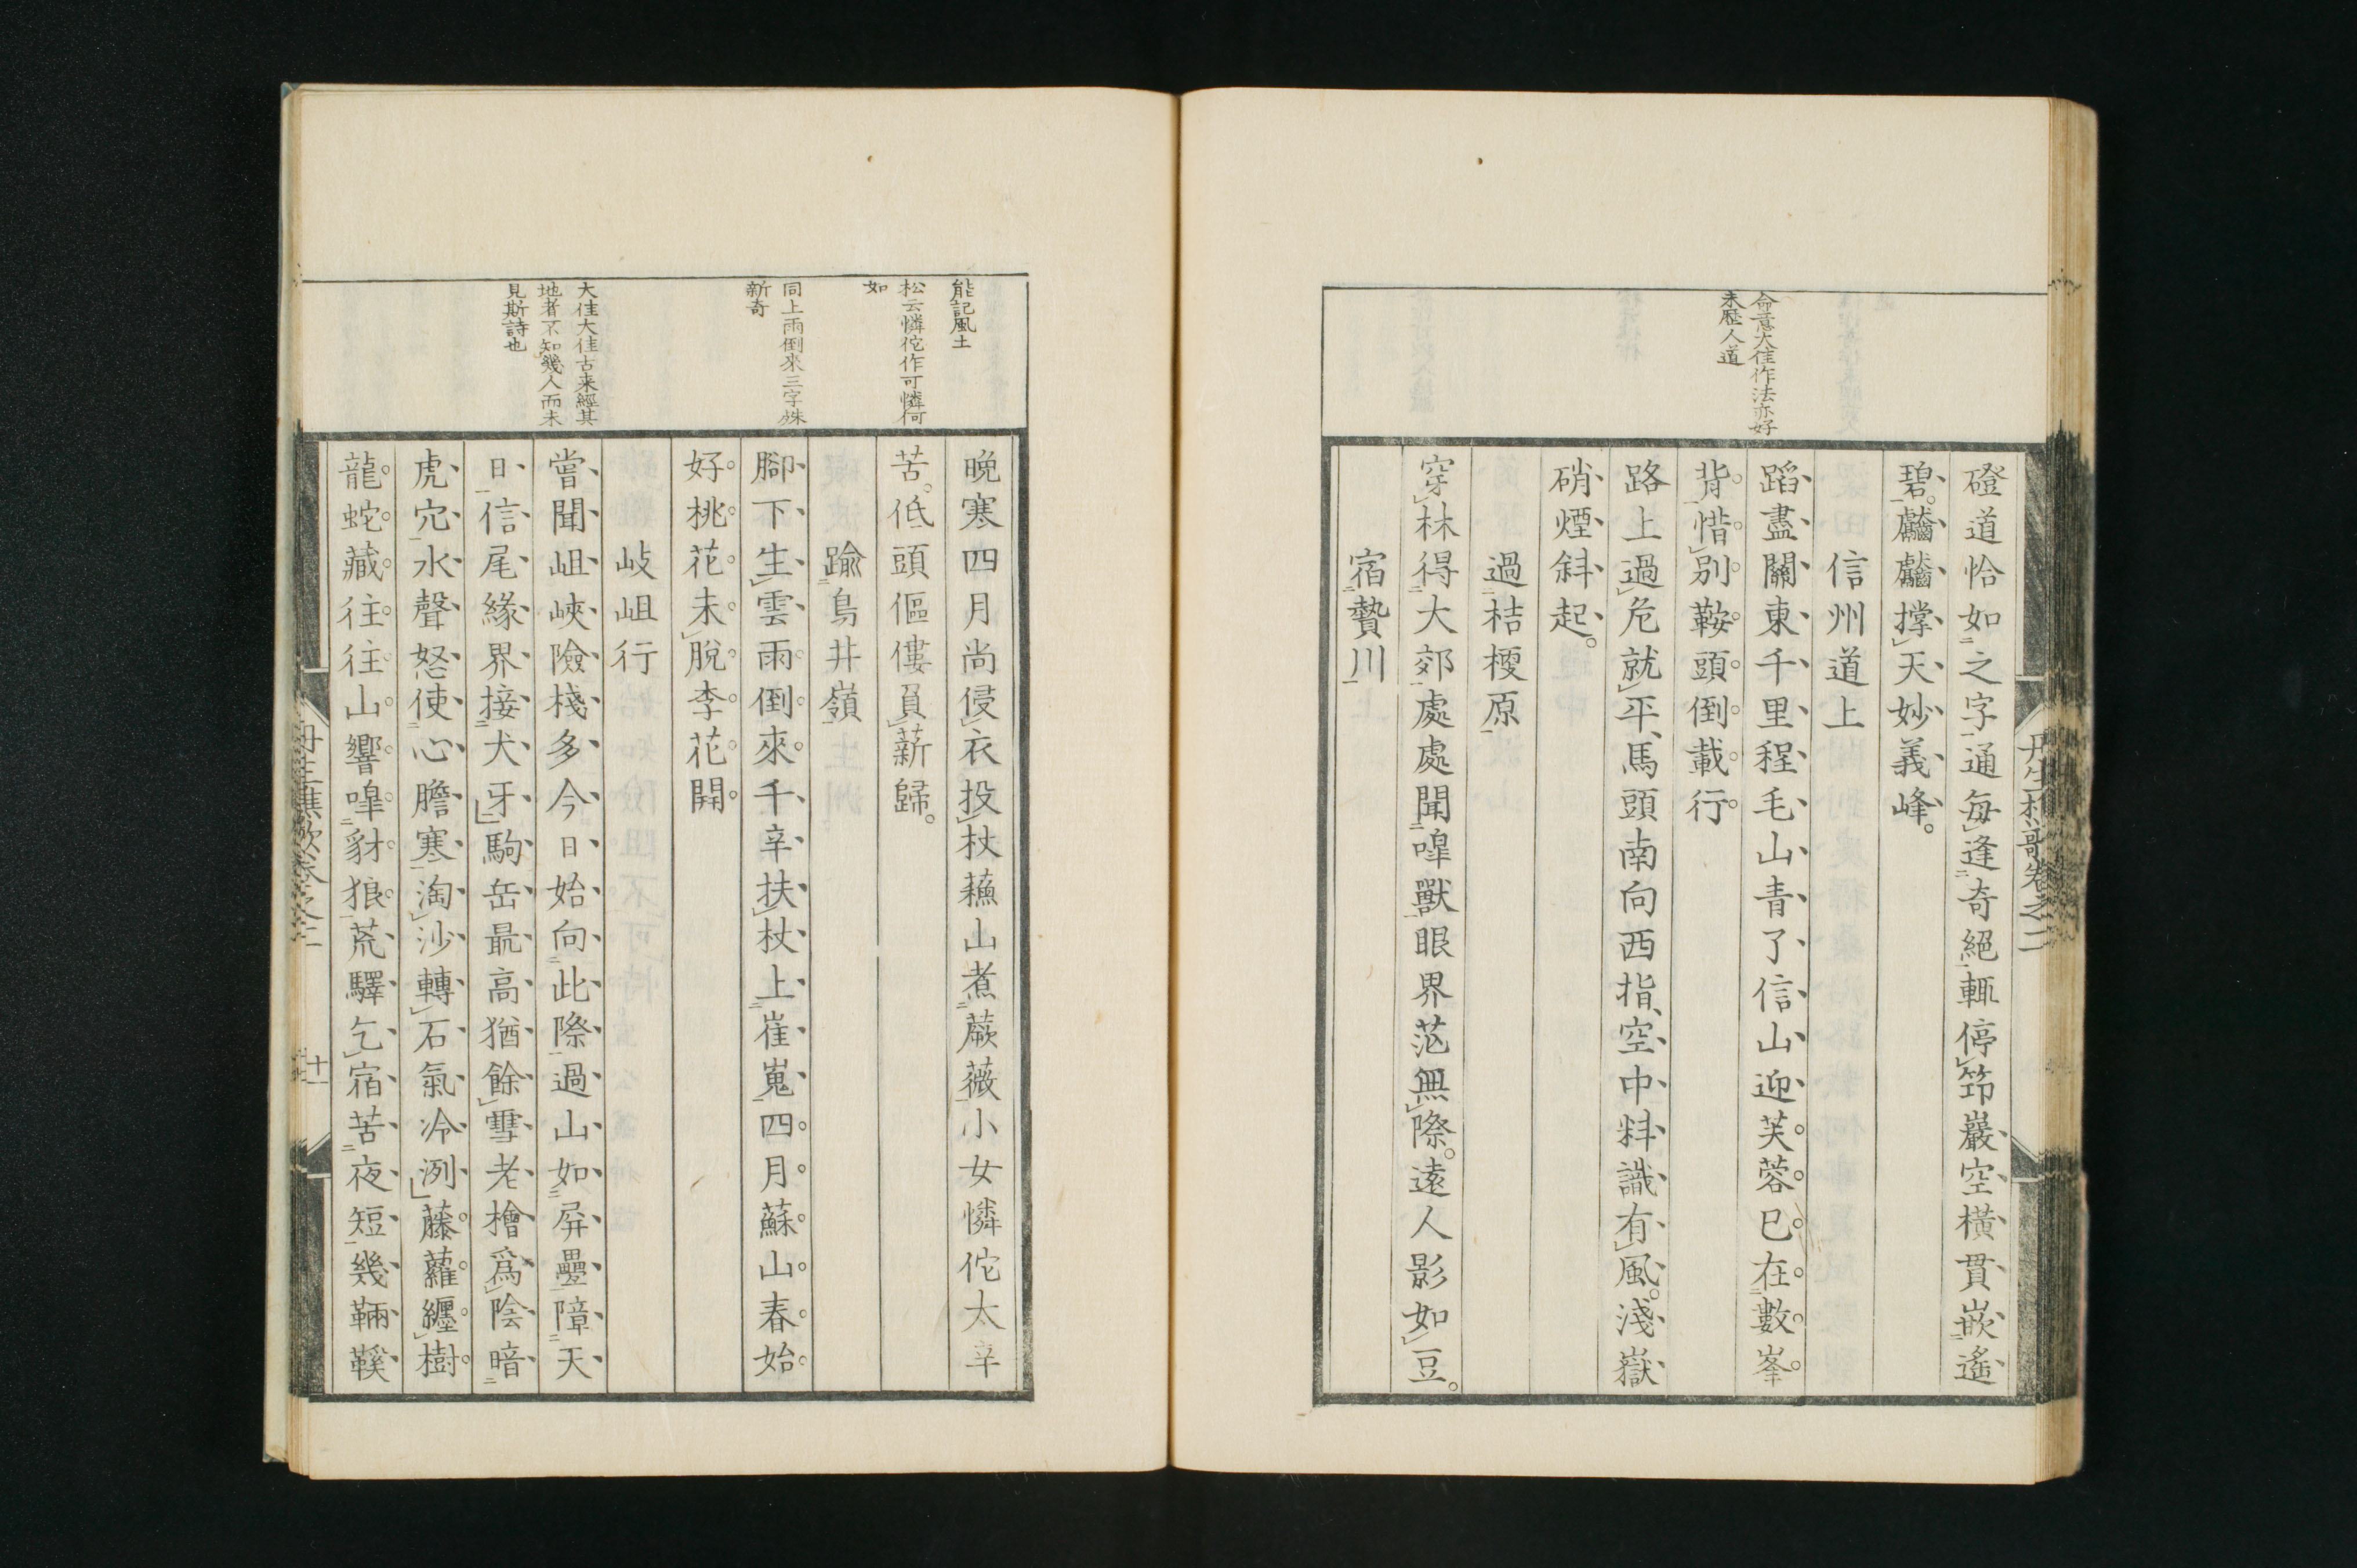 命意大佳作法亦好
未歷人道
磴道恰如之字通每逢奇絕輒停筇巖空橫貫嵌遙
碧。巉巉撑天妙義峰。
信州道上
蹈盡關東千里程毛山青了信山迎芙蓉已在數峯
背惜別鞍頭倒載行
路上過危就平馬頭南向西指空中料識有風。淺嶽
硝煙斜起。
過桔梗原
穿林得大郊處處聞嘷獸眼界茫無際。遠人影如豆。
宿贄川
能記風土
松云憐佗作可憐何
如
同上雨倒來三字殊
新奇
大佳大佳古来經其
地者不知幾人而未
見斯詩也
晚寒四月尚侵衣投杖蘓山煮蕨薇小女憐佗太辛
苦。低頭傴僂負薪歸。
踰鳥井嶺
腳下生雲雨倒來千辛扶杖上崔嵬四月蘇山春始
好桃花未脫李花開
岐岨行
嘗聞岨峽險棧多今日始向此際過山如屏疊障天
日信尾緣界接犬牙駒岳最高猶餘雪老檜爲陰暗
虎穴水聲怒使心膽寒淘沙轉石氣冷洌藤蘿纏樹
龍蛇藏往往山響嘷豺狼荒驛乞宿苦夜短幾輛鞵
丹生樵歌卷之二
十一